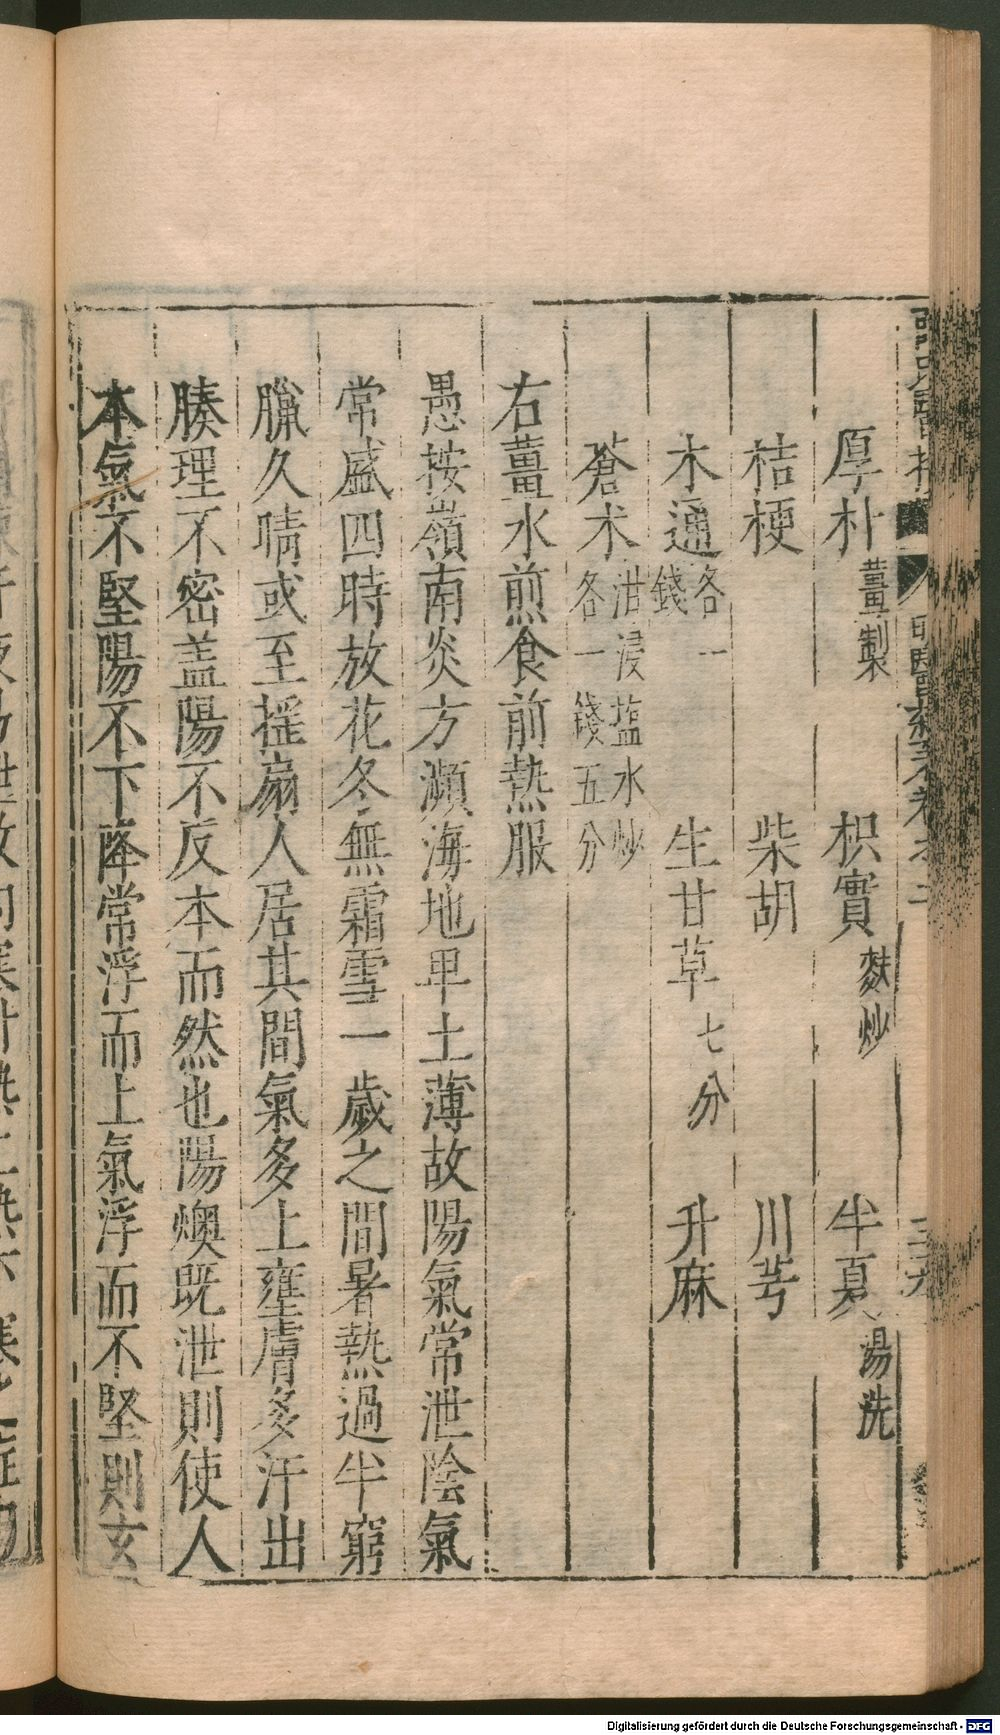 厚朴薑製 枳實麩炒 半夏湯洗
桔梗 柴胡 川芎
木通各一錢 生甘草七分 升麻
蒼术泔浸鹽水炒各一錢五分
右薑水煎食前熱服
愚按嶺南炎方瀕海地卑土薄故陽氣常泄陰氣
常盛四時放花冬無霜雪一歲之間暑熱過半窮
臘久晴或至揺扇人居其間氣多上壅膚多汗出
腠理不密盖陽不反本而然也陽燠既泄則使人
本氣不堅陽不下降常浮而上氣浮而不堅則玄
Digitalisierung gefördert durch die Deutsche Forschungsgemeinschaft - DFG